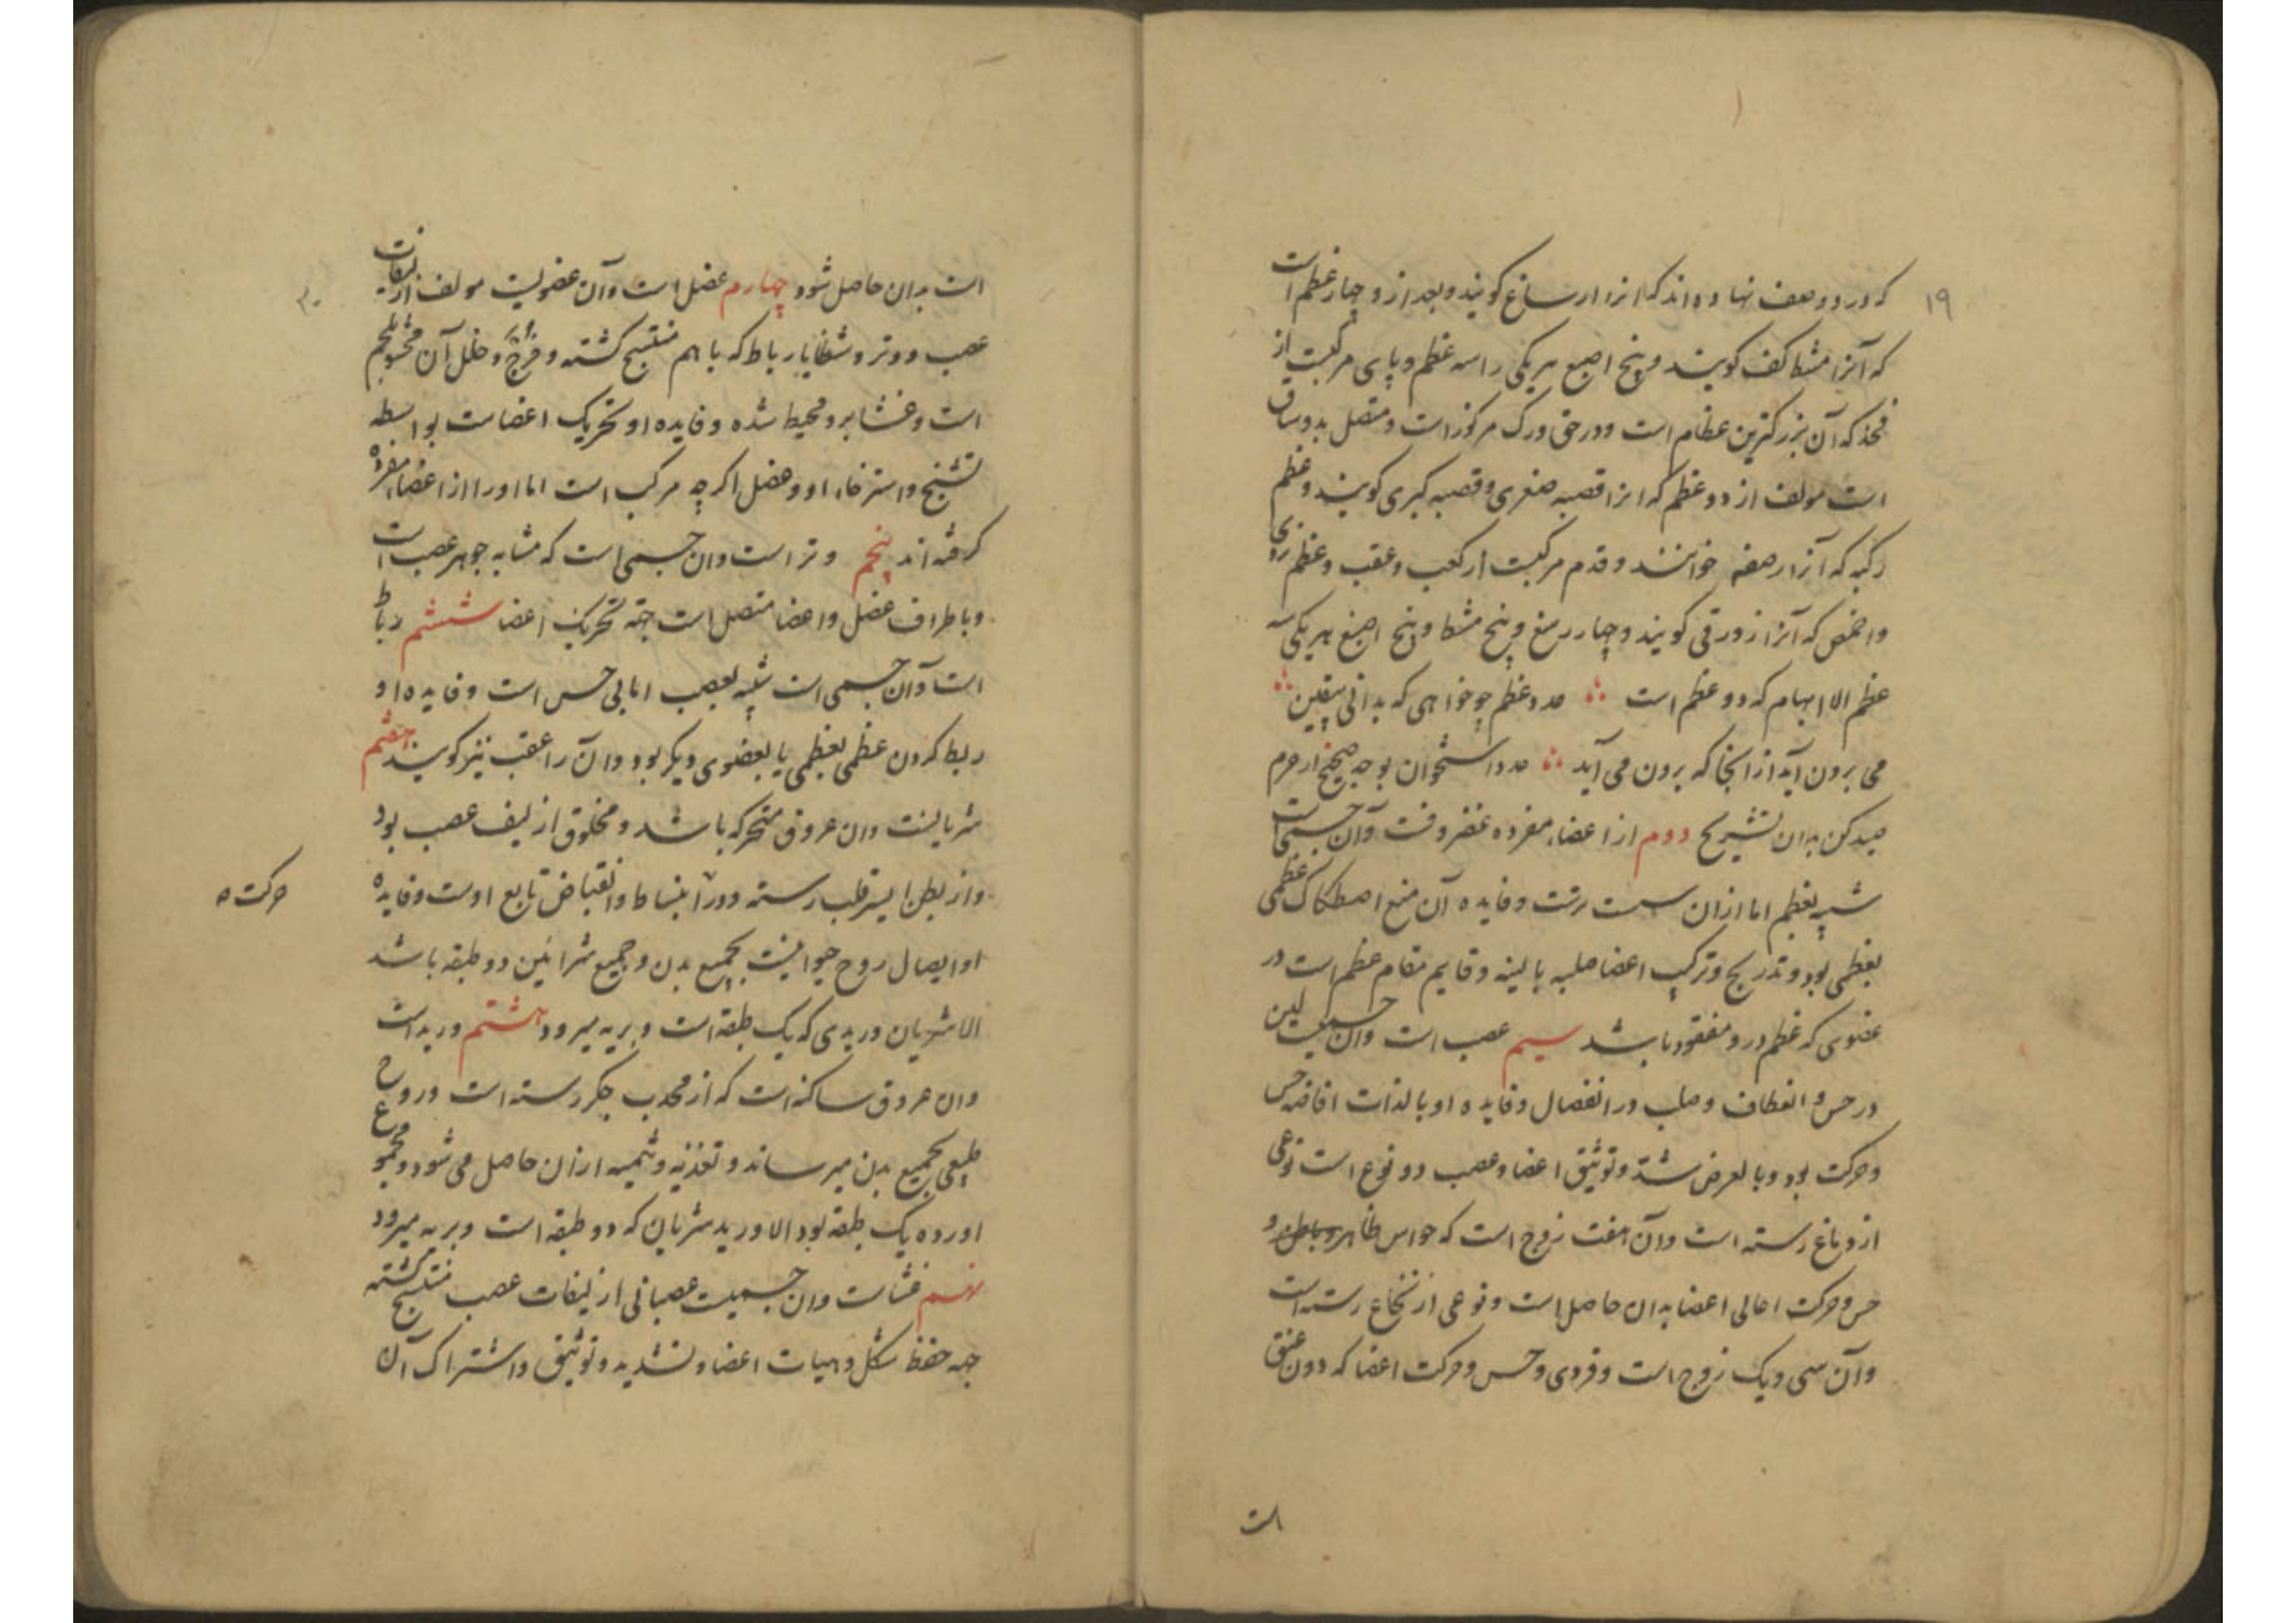 ۱۹
که در دو صف نهاده اند که انرا رسغ کویند و بعد ازو چهار عظم است
که آنرا مشط کف کویند و پنج اصبع هر یکی را سه عظم و پای مرکبست از
فخذ که آن بزرکترین عظام است و در حق ورک مرکوز است و متصل بدو ساق
است مولف از دو عظم که انرا قصبه صغری و قصبه کبری کویند و عظم
رکبه که آنرا رضفه خوانند و قدم مرکبست از کعب و عقب و عظم
و اخمص که آنرا زورقی کویند و چهار رسغ و پنج مشط و پنج اصبع هر یکی سه
عظم الا ابهام که دو عظم است عدد عظم چو خواهی که بدانی بیقین
می برون آید از انجا که برون می آید عدد استخوان بوجه صحیح از حرم
صید کن بدان تشریح دوم از اعضاء مفرده غضروفت و آن جسمی است
شبیه بعظم اما ازان سست ترست و فایده آن منع اصطکاک عظمی
بعظمی بود و تدریج و ترکیب اعضا صلبه با لینه و قایم مقام عظم است در
عضوی که عظم درو مفقود باشد سیم عصب است و ان جسمیست لین
در حس و انعطاف و صلب در انفصال و فایده او بالذات افاضه حس
و حرکت بود و بالعرض شد و توثیق اعضا و عصب دو نوع است نوعی
از دماغ رسته است و آن هفت زوج است که حواس ظاهر و باطن و
حس و حرکت اعالی اعضا بدان حاصل است و نوعی از نخاع رسته است
و آن سی و یک زوج است و فردی و حس و حرکت اعضا که دون عنق
است
۲۰
است بدان حاصل شود چهارم عضل است و آن عضویست مولف از لیفات
عصب و وتر و شظایا رباط که با هم منتسج کشته و فرج و خلل آن محشو بلحم
است و غشا برو محیط شده و فایده او تحریک اعضاست بواسطه
تشنج و استرخاء او و عضل اکرچه مرکب است اما او را از اعضاء مفرده
کرفته اند پنجم وتر است و ان جسمی است که مشابه جوهر عصب است
و باطراف عضل و اعضا متصل است جهة تحریک اعضا ششم رباط
است و آن جسمی است شبیه بعصب اما بی حس است و فایده او
ربط کردن عظمی بعظمی یا بعضوی دیکر بود و آن را عقب نیز کویند هفتم
شریانست و ان عروق متحرکه باشد و مخلوق از لیف عصب بود
و از بطن ایسر قلب رسته و در انبساط و انقباض تابع اوست و فایده
حرکت ه
او ایصال روح حیوانیست بجمیع بدن و جمیع شرائین دو طبقه باشد
الا شریان وریدی که یک طبقه است و بریه میرود هشتم ورید است
و ان عروق ساکنه است که از محدب جکر رسته است و روح
طبیعی بجمیع بدن میرساند و تغذیه و تنمیه ازان حاصل می شود و مجموع
اورده یک طبقه بود الا ورید شریان که دو طبقه است و بریه میرود
نهم غشاست و ان جسمیست عصبانی از لیفات عصب منتسج کشته
جهة حفظ شکل و هیات اعضا و تشدید و توثیق و اشتراک آن